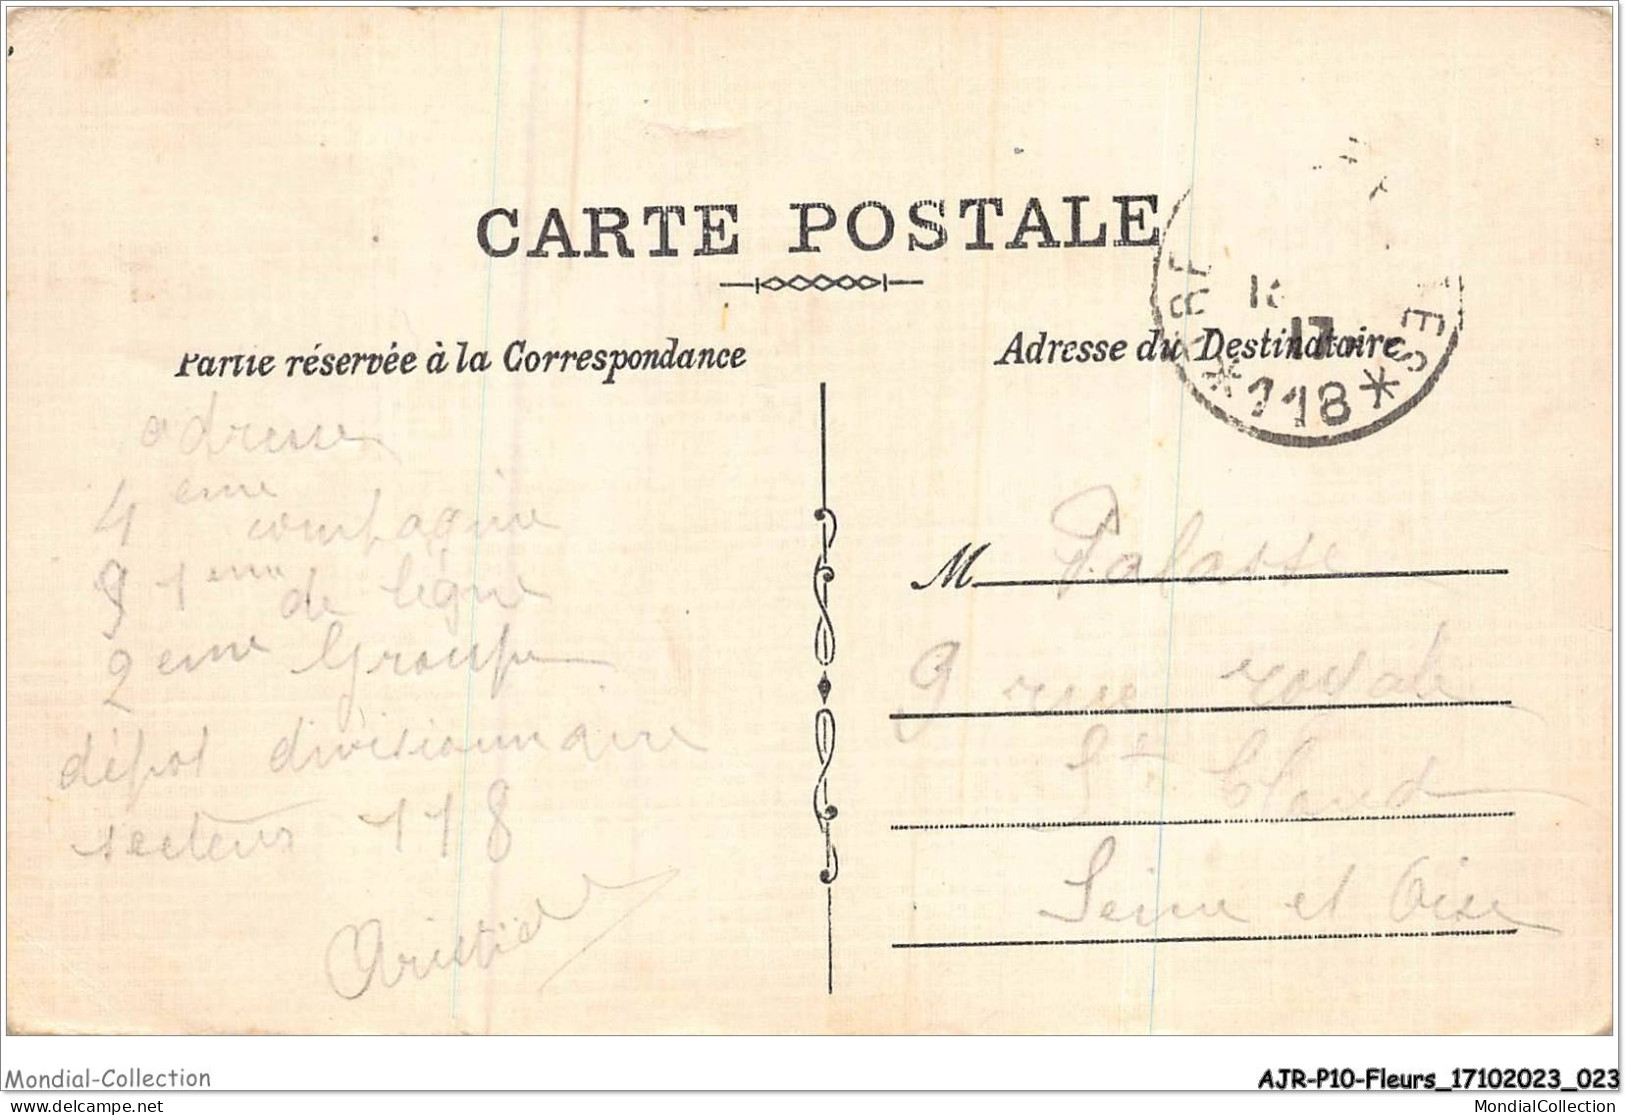 CARTE POSTALE
Partie réservée à la Correspondance
Adresse du Destinataire
*118*
17
adresse
4 eme compagnie
91 eme de ligne
2 eme Groupe
dépot divisionnaire
secteur 118
M Palasse
9 rue royale
St Cloud
Seine et Oise
Mondial-Collection
AJR-P10-Fleurs_17102023_023
delcampe.net
MondialCollection